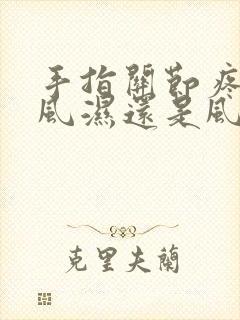 手指關節疼
風濕還是風
克里夫蘭